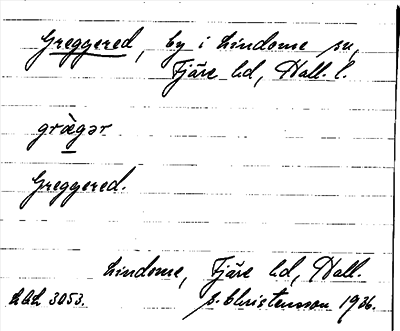 Greggered, by i Lindome sn,
Fjäre hd, Hall. l.
grægər
Greggered.
Lindome, Fjäre hd, Hall.
LAL 3053. S. Christensson 1936.